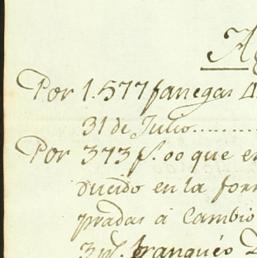 A
Por 1.577 fanegas 4
31 de Julio..........
Por 373 f. 00 que en
ducido en la form
pradas à Cambio
franqueó